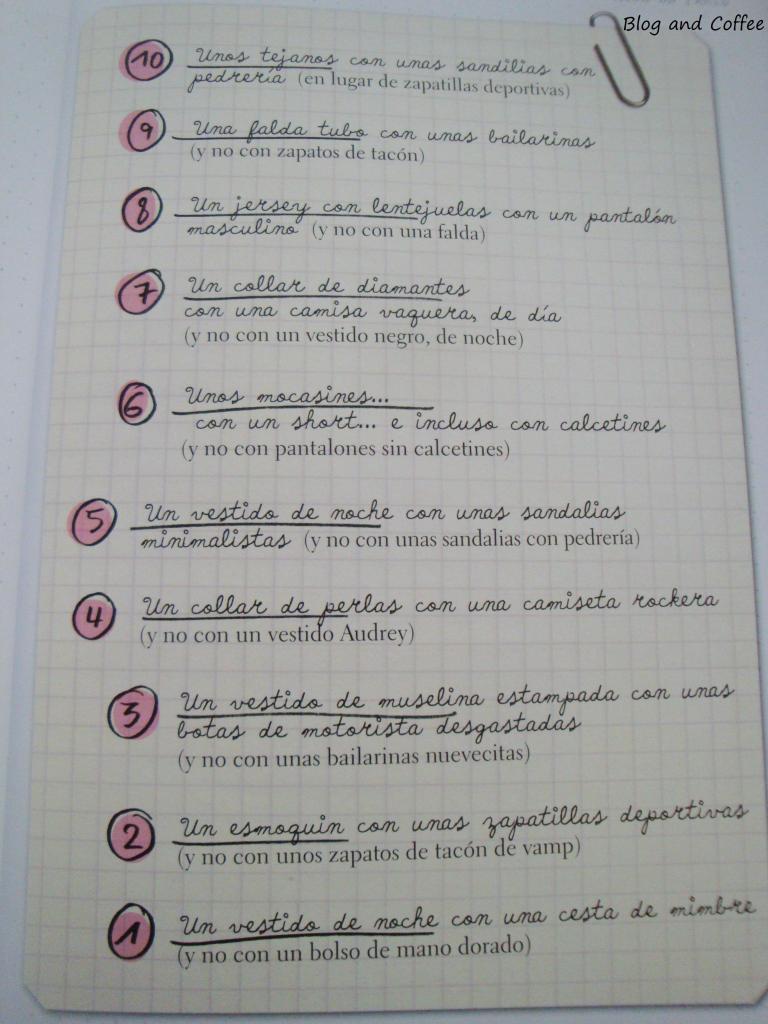 Blog and Coffee
10 Unos tejanos con unas sandilias con
pedrería (en lugar de zapatillas deportivas)
9 Una falda tubo con unas bailarinas
(y no con zapatos de tacón)
8 Un jersey con lentejuelas con un pantalón
masculino (y no con una falda)
7 Un collar de diamantes
con una camisa vaquera, de día
(y no con un vestido negro, de noche)
6 Unos mocasines...
con un short... e incluso con calcetines
(y no con pantalones sin calcetines)
5 Un vestido de noche con unas sandalias
minimalistas (y no con unas sandalias con pedrería)
4 Un collar de perlas con una camiseta rockera
(y no con un vestido Audrey)
3 Un vestido de muselina estampada con unas
botas de motorista desgastadas
(y no con unas bailarinas nuevecitas)
2 Un esmoquin con unas zapatillas deportivas
(y no con unos zapatos de tacón de vamp)
1 Un vestido de noche con una cesta de mimbre
(y no con un bolso de mano dorado)